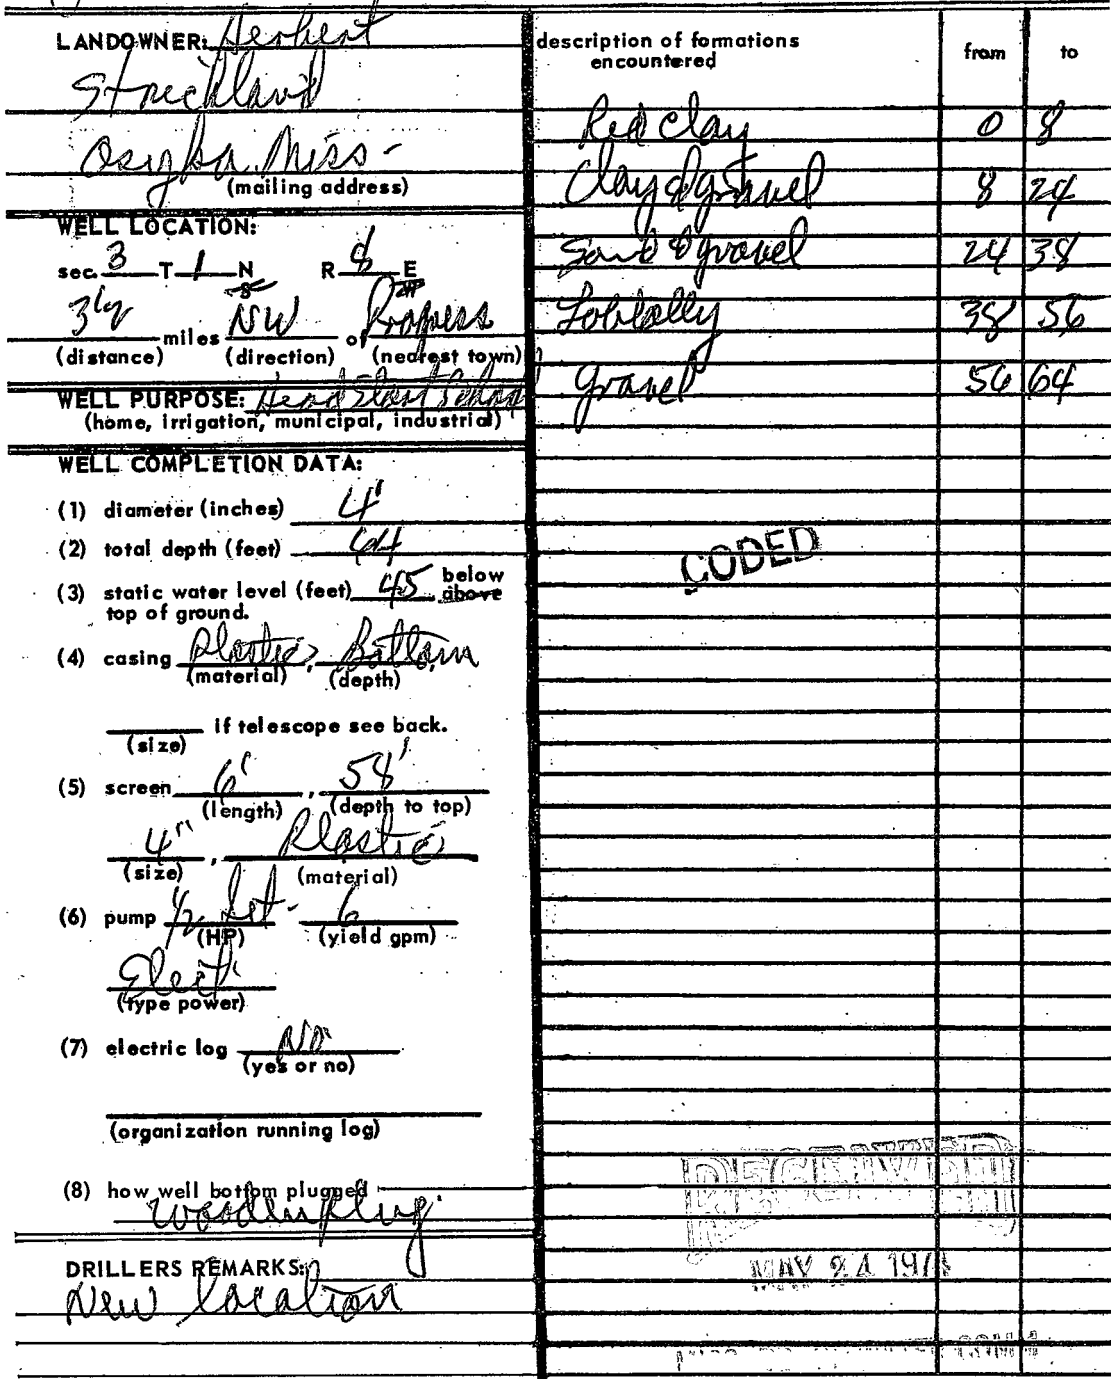 LANDOWNER: Herbert
Strickland
Osyka Miss-
(mailing address)
WELL LOCATION:
sec. 3 T 1 N R 8 E
3 1/2 miles NW of Progress
(distance) (direction) (nearest town)
WELL PURPOSE: Head Start School
(home, irrigation, municipal, industrial)
WELL COMPLETION DATA:
(1) diameter (inches) 4"
(2) total depth (feet) 64
(3) static water level (feet) 45 below above
top of ground.
(4) casing Plastic, Bottom
(material) (depth)
(size) if telescope see back.
(5) screen 6', 58'
(length) (depth to top)
4", Plastic
(size) (material)
(6) pump 1/2 Jet- 6
(HP) (yield gpm)
Elect.
(type power)
(7) electric log No
(yes or no)
(organization running log)
(8) how well bottom plugged
wooden plug
DRILLERS REMARKS:
New location
description of formations encountered from to
Red Clay 0 8
Clay & gravel 8 24
Sand & gravel 24 38
Loblolly 38 56
gravel 56 64
CODED
RECEIVED
MAY 24 197